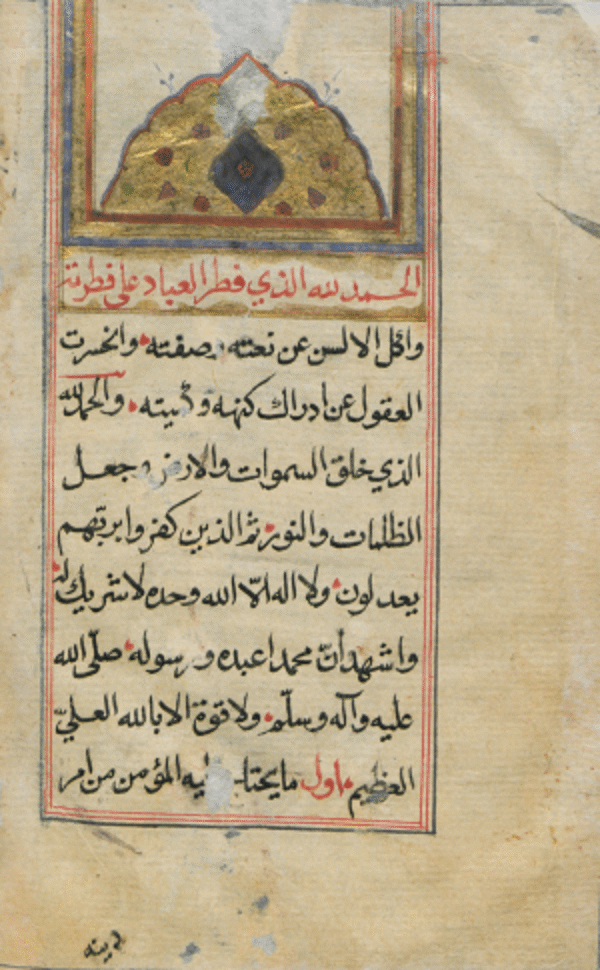 الحمد لله الذي فطر العباد على فطرته
واكل الالسن عن نعته وصفته وانحسرت
العقول عن ادراك كنهه و والحمد لله
الذي خلق السموات والارض وجعل
الظلمات والنور ثم الذين كفروا بربهم
يعدلون ولا اله الا الله وحده لا شريك له
واشهد أن محمدا عبده ورسوله صلى الله
عليه وآله وسلم ولا قوة الا بالله العلي
العظيم اول ما يحتاج اليه المؤمن من امر
دينه